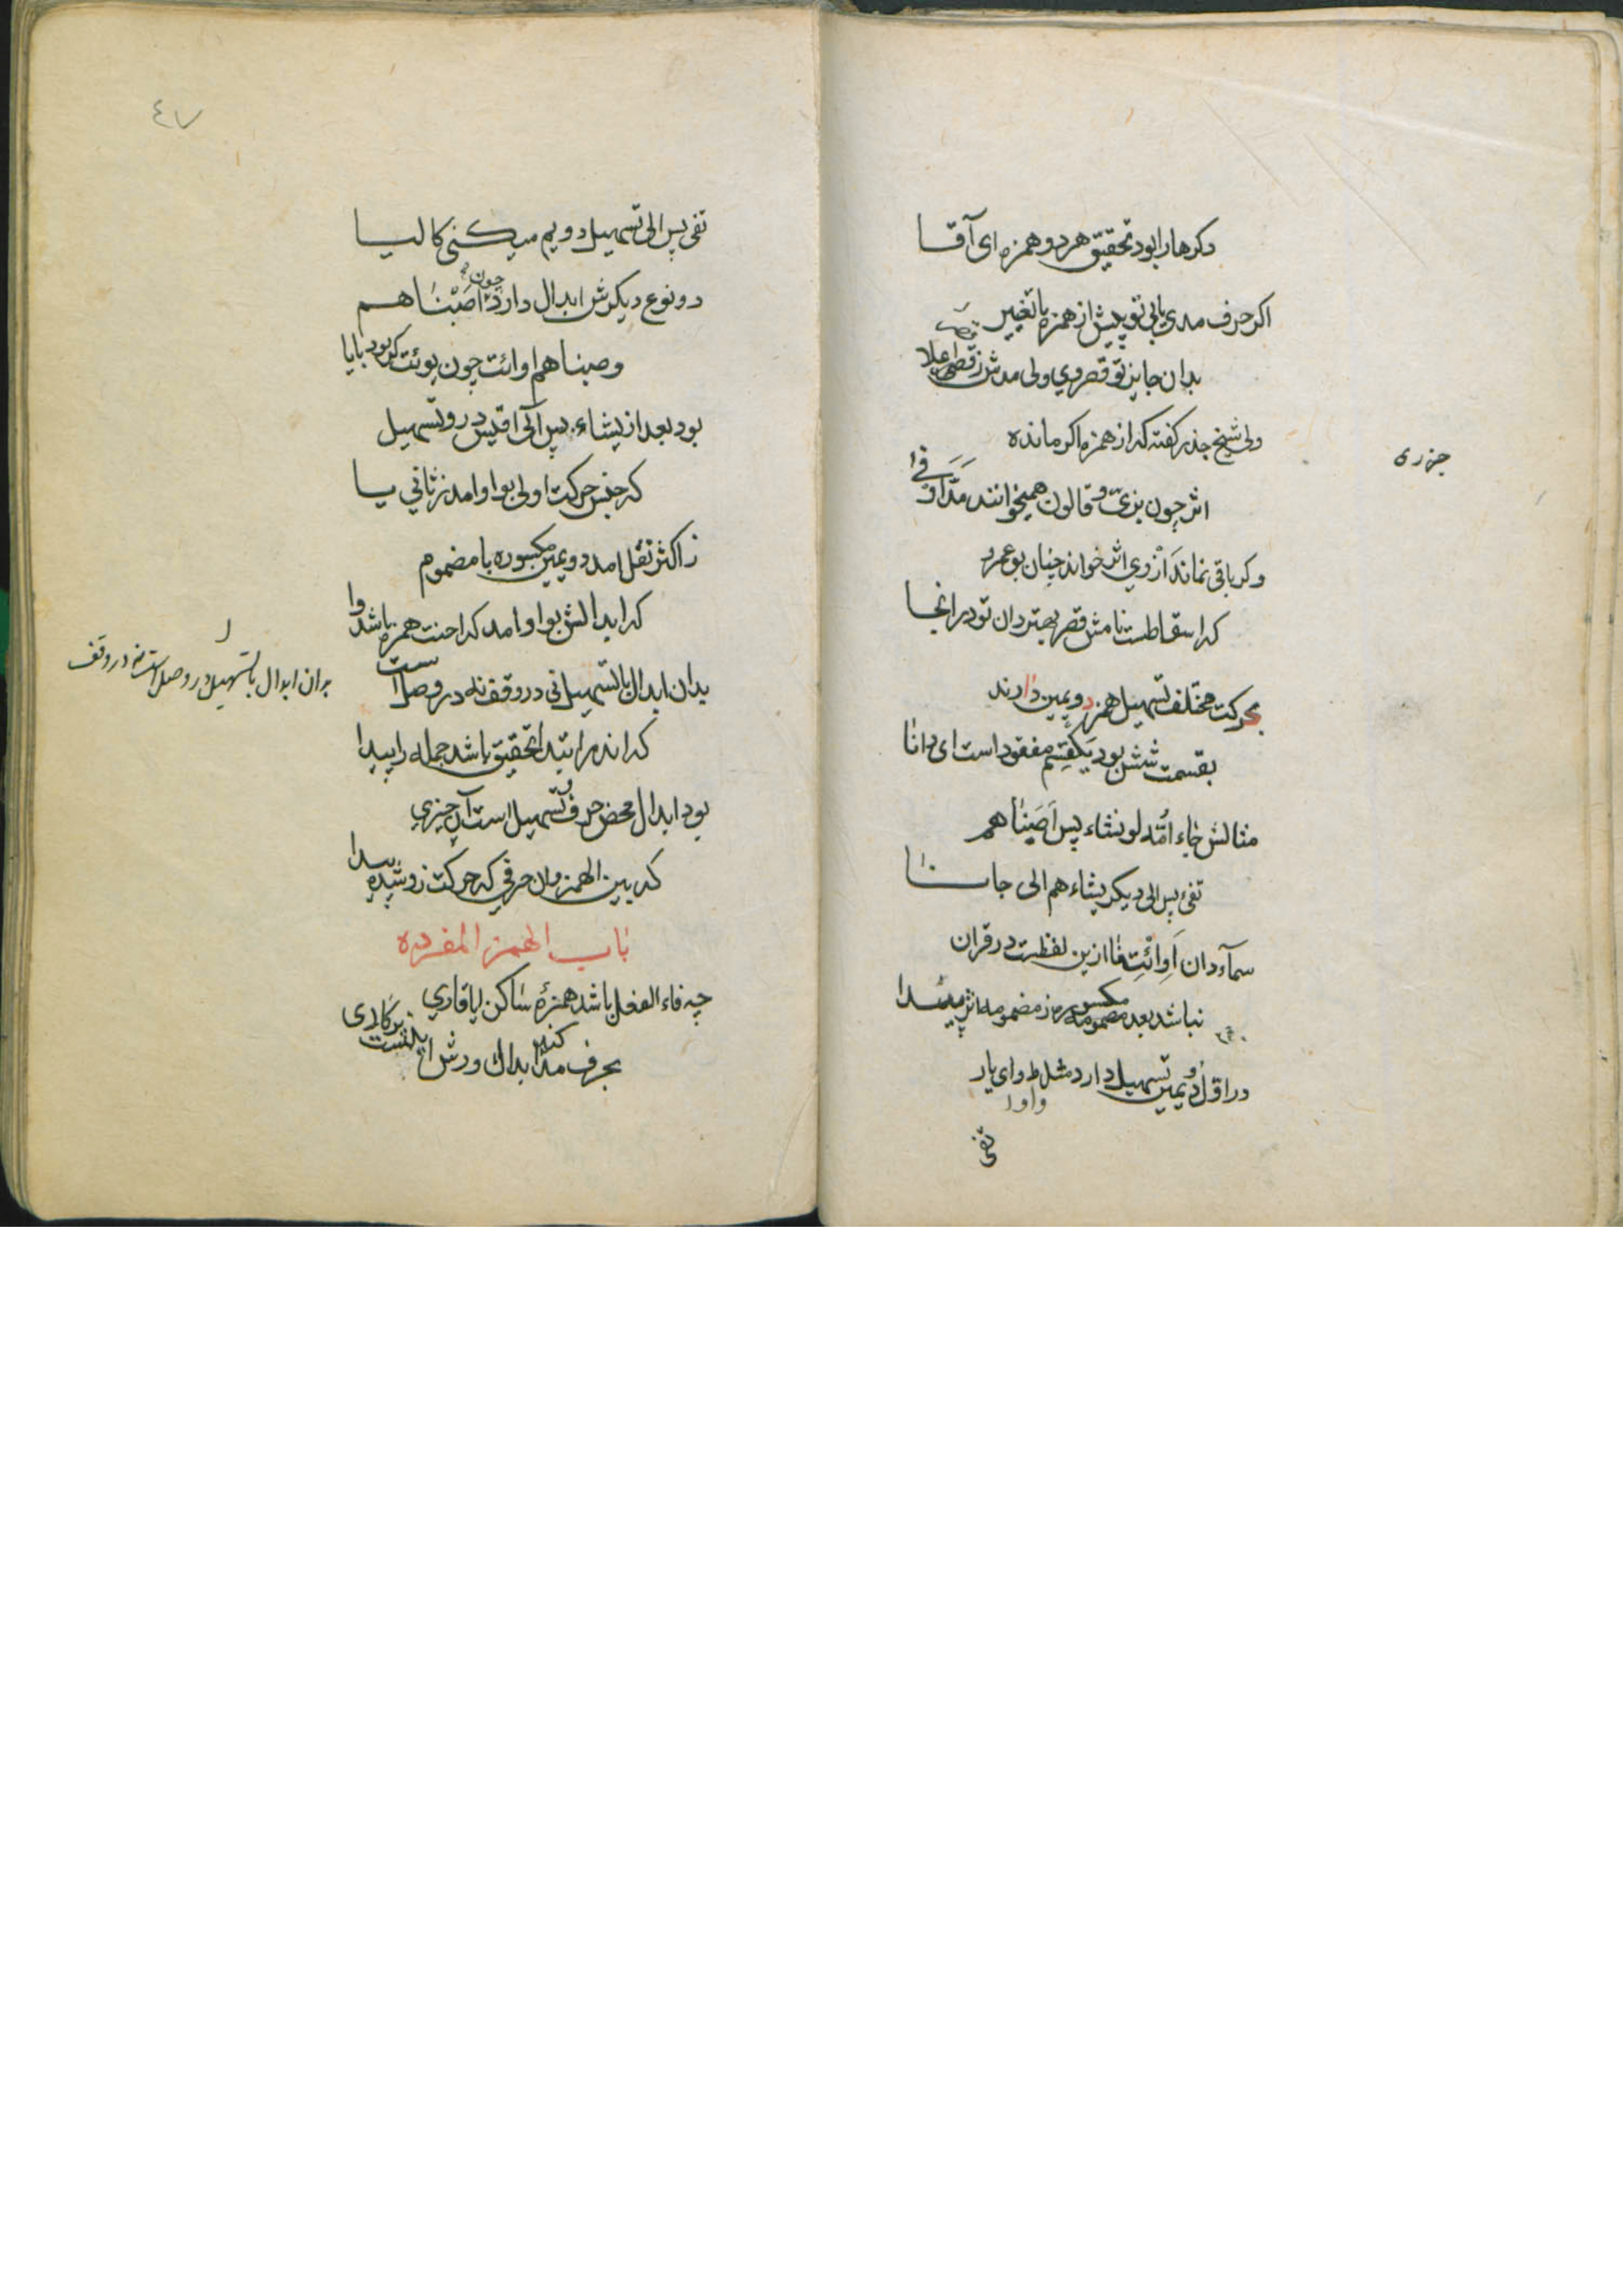 دکرها را بود تحقیق هر دو همزه ای آقا
اکر حرف مدی یابی تو پیش از همزه با تغییر
بدان جایز تو قصر وی ولی مدش ز قصر اعلا
ولی شیخ جذر کفته که از همزه اکر مانده
جزری
اثر چون بزی و قالون همیخوانند مدا
وکر باقی نماند از وی اثر خواند چنان بوعمرو
که اسقاطست نامش قصر بهتر دان تو در انجا
بحرکت مختلف تسهیل همز دویمین دارند
بقسمت شش بود یکقسم مفقود است ای دانا
مثالش جاء امة لو نشاء پس اصبناهم
تفئ پس الی دیکر یشاء هم الی جا
سمآء دان اوائت فا ازین لفظت در قران
نباشد بعد مکسوره ز مضمومه اثر پیدا
در اول دویمین تسهیل دارد مثل واو ای یار
تفی
٤٧
تفی پس الی تسهیل دویم میکنی کالیا
دو نوع دیکرش ابدال دارد چون اصبناهم
وصبناهم اوائت چون یوئت کر بود بایا
بود بعد از یشاء پس الی اقلیس در و تسهیل
که جنس حرکت اولی بواو امد ز ثانی یا
ز اکثر نقل امد دویمین مکسوره با مضموم
که ابدالش بواو امد که احنت همزه باشد وا
بدان ابدال با تسهیل نی در وقف نه در وصل است
بدان ابدال با تسهیل در وصل است نه در وقف
که اندر ابتدا تحقیق باشد جمله را پیدا
بود ابدال محض حرف و تسهیل است آن چیزی
که بین الهمز وان حرفی که حرکت زو شده پیدا
باب الهمز المفرده
چه فاء الفعل باشد همزهٔ ساکن ایا قاری
بحرف مد کند ابدال ورش